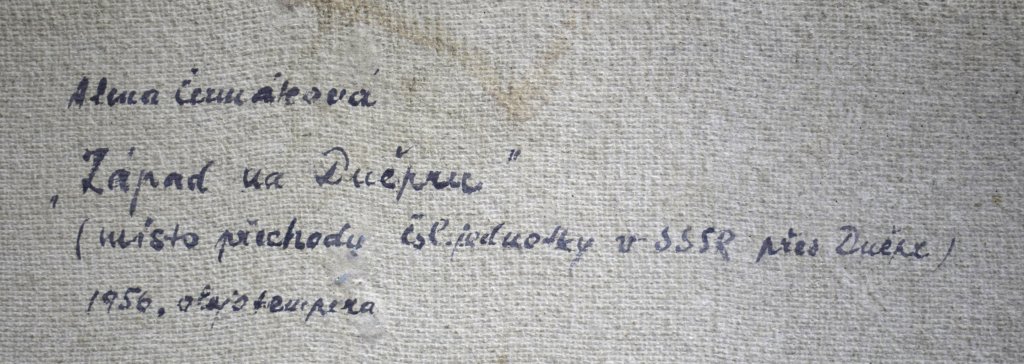 Alena Čermáková
„Západ na Dněpru"
(místo přechodu čsl. jednotky v SSSR přes Dněpr)
1956, olejotempera